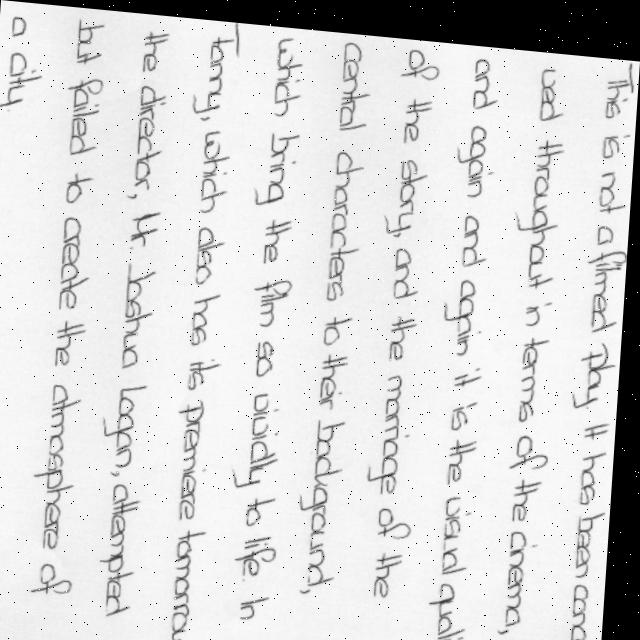 This is not a filmed play. It has been
throughout in terms of the cinema,
and again and again it is the visual
of the story and the marriage of the
central characters to their background,
which bring the film so vividly to life. In
which also has its premiere
the director, Mr Joshua Logan, attempted
but failed to create the atmosphere of
a city